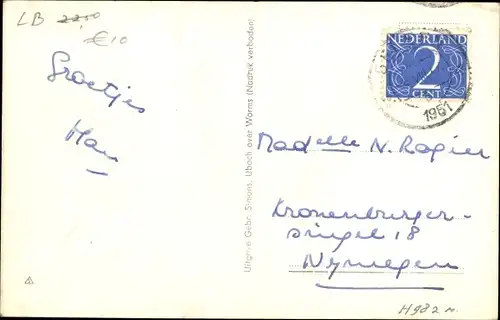 LB 2200
€10
Groetjes
Han
Uitgave Gebr. Simons, Ubach over Worms (Nadruk verboden)
NEDERLAND
2
CENT
1951
Madelle N. Rogier
Kronenburger-
singel 18
Nymegen
H982 n.